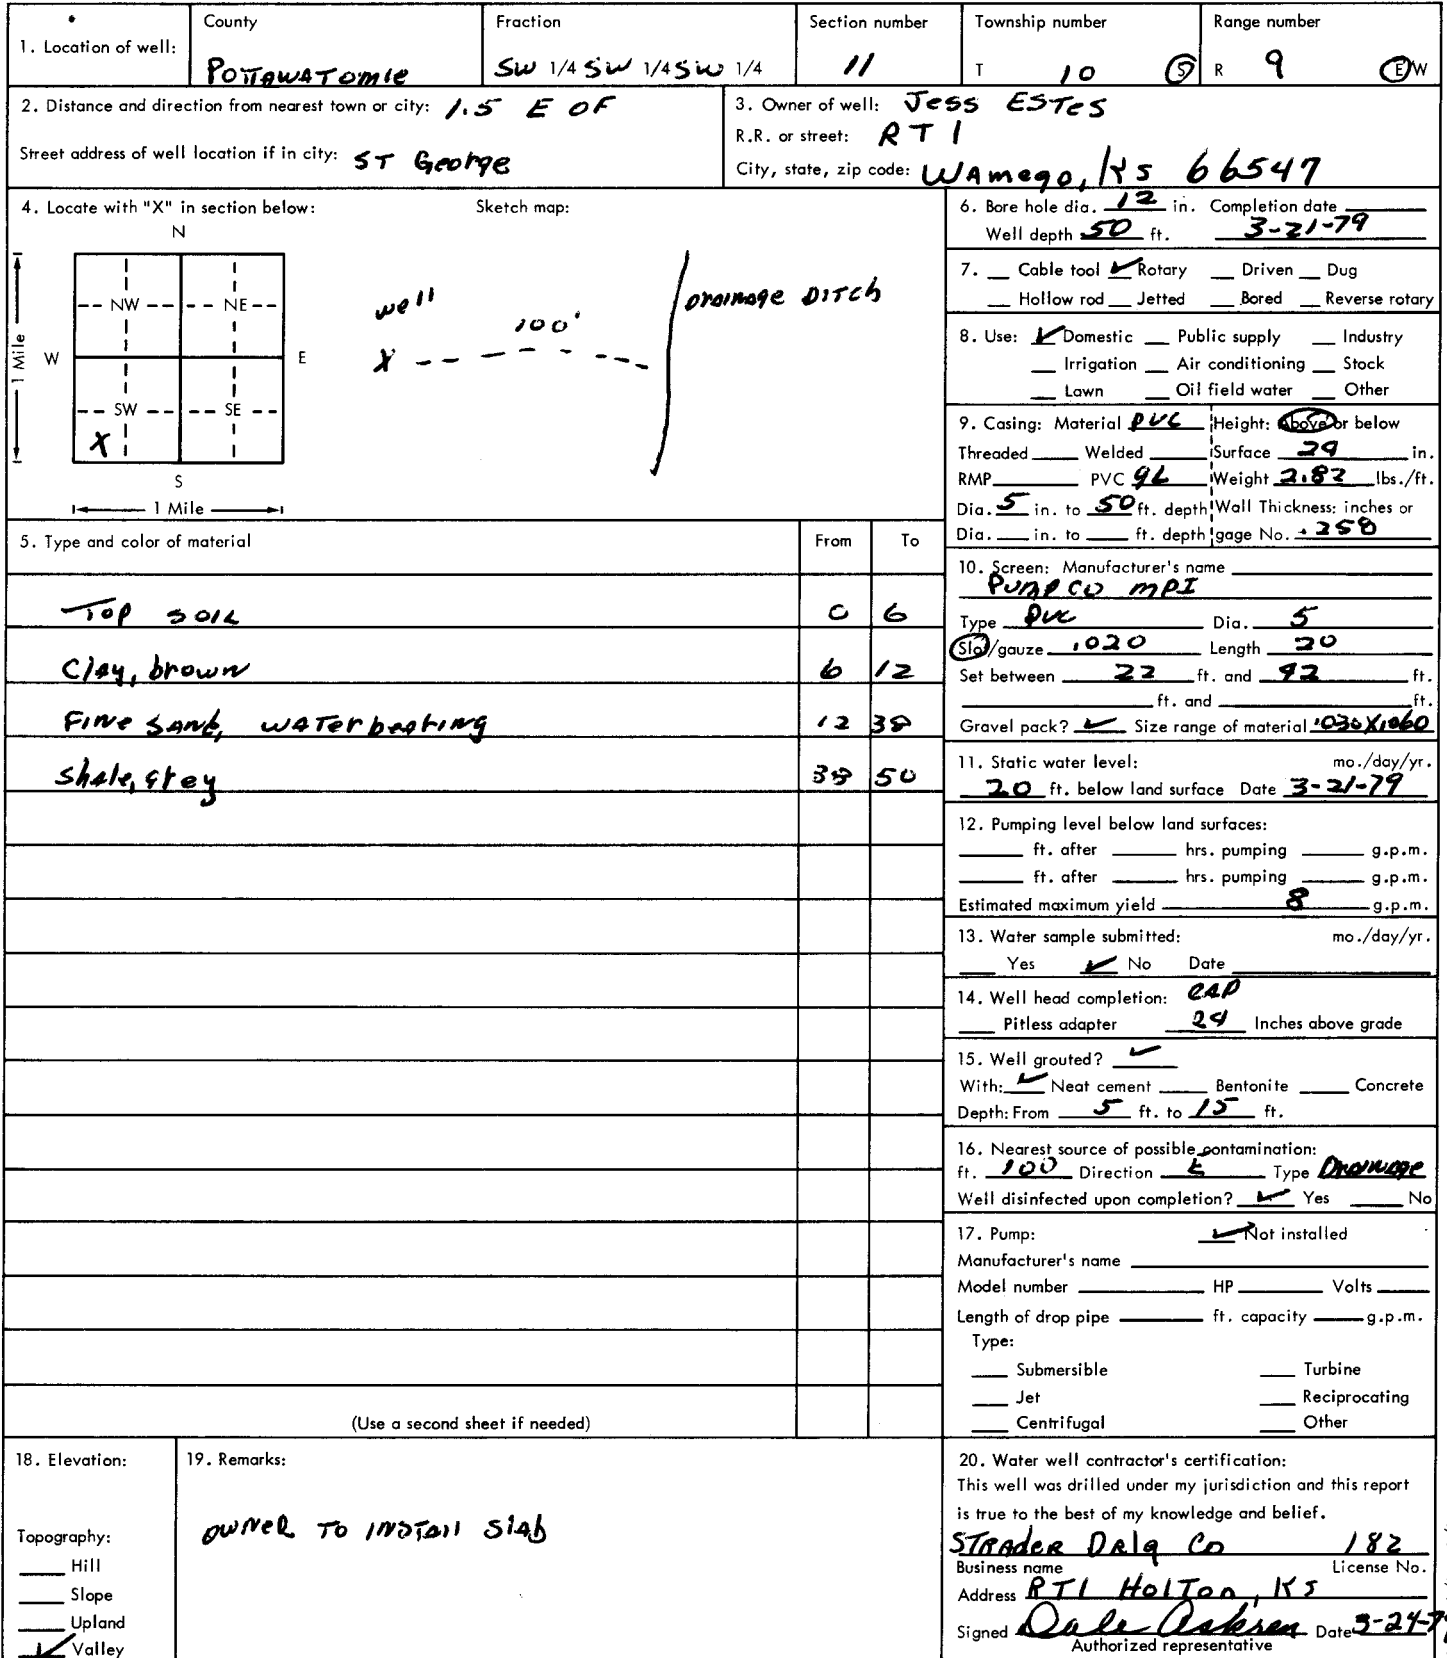 1. Location of well:
County
POTTAWATOMIE
Fraction
SW 1/4 SW 1/4 SW 1/4
Section number
11
Township number
T 10 S
Range number
R 9 E/W
2. Distance and direction from nearest town or city: 1.5 E OF
Street address of well location if in city: ST George
3. Owner of well: Jess ESTes
R.R. or street: RT 1
City, state, zip code: WAmego, KS 66547
4. Locate with "X" in section below:
Sketch map:
N
NW NE
W E
SW SE
X
S
1 Mile
1 Mile
well
100'
X
Drainage DITCh
5. Type and color of material From To
Top soil 0 6
Clay, brown 6 12
Fine sand, water bearing 12 38
Shale, grey 38 50
(Use a second sheet if needed)
6. Bore hole dia. 12 in. Completion date
Well depth 50 ft. 3-21-79
7. Cable tool ✓ Rotary Driven Dug
Hollow rod Jetted Bored Reverse rotary
8. Use: ✓ Domestic Public supply Industry
Irrigation Air conditioning Stock
Lawn Oil field water Other
9. Casing: Material PVC Height: Above or below
Threaded Welded Surface 24 in.
RMP PVC GL Weight 2.82 lbs./ft.
Dia. 5 in. to 50 ft. depth Wall Thickness: inches or
Dia. in. to ft. depth gage No. .258
10. Screen: Manufacturer's name
PUMP CO MPI
Type PVC Dia. 5
Slot/gauze .020 Length 20
Set between 22 ft. and 42 ft.
ft. and ft.
Gravel pack? ✓ Size range of material .030X.060
11. Static water level: mo./day/yr.
20 ft. below land surface Date 3-21-79
12. Pumping level below land surfaces:
ft. after hrs. pumping g.p.m.
ft. after hrs. pumping g.p.m.
Estimated maximum yield 8 g.p.m.
13. Water sample submitted: mo./day/yr.
Yes ✓ No Date
14. Well head completion: CAP
Pitless adapter 24 Inches above grade
15. Well grouted? ✓
With: ✓ Neat cement Bentonite Concrete
Depth: From 5 ft. to 15 ft.
16. Nearest source of possible contamination:
ft. 100 Direction E Type Drainage
Well disinfected upon completion? ✓ Yes No
17. Pump: ✓ Not installed
Manufacturer's name
Model number HP Volts
Length of drop pipe ft. capacity g.p.m.
Type:
Submersible Turbine
Jet Reciprocating
Centrifugal Other
18. Elevation:
Topography:
Hill
Slope
Upland
✓ Valley
19. Remarks:
OWNER TO INSTAll SlAb
20. Water well contractor's certification:
This well was drilled under my jurisdiction and this report
is true to the best of my knowledge and belief.
STRAder DRlg Co 182
Business name License No.
Address RT1 HolTon, KS
Signed Dale Askren Date 3-24-79
Authorized representative